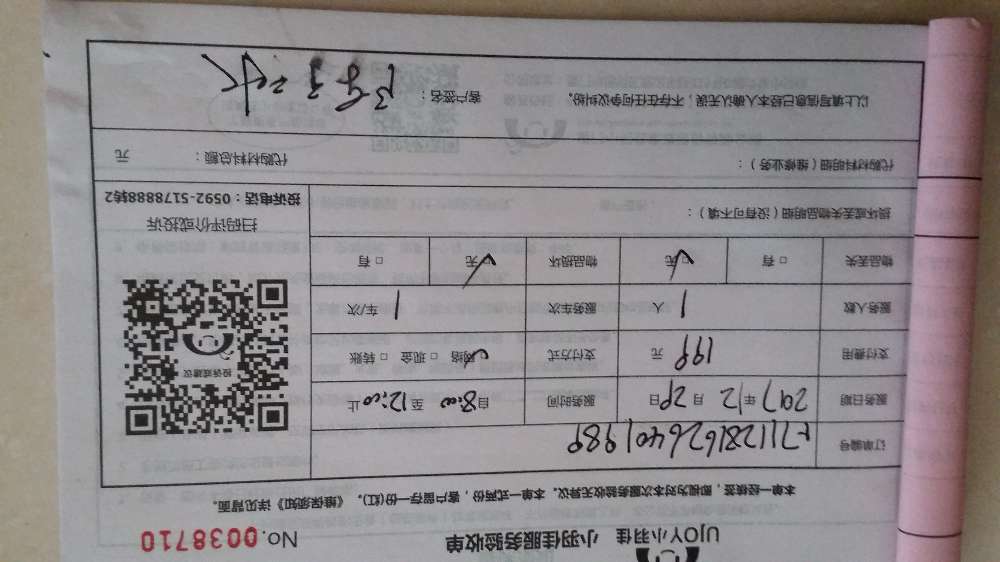 UJOY小羽佳 小羽佳服务验收单 No.0038710
本单一经核签,即视为对本次服务验收无异议。本单一式两份,客户留存一份(红)。《维保须知》详见背面。
订单编号 F711281626401989
服务日期 2017年12月29日 服务时间 自8:00至12:00止
支付费用 199 元 支付方式 ☑网络 □现金 □转账
服务人数 1 人 服务车次 1 车/次
物品丢失 □有 ☑无 物品损坏 ☑无 □有
损坏或丢失物品明细(没有可不填):
投诉或建议
扫码评价或投诉
投诉电话:0592-5178888转2
代购材料明细(维修业务): 代购材料总额: 元
以上填写信息已经本人确认无误,不存在任何争议纠纷。 客户签名: